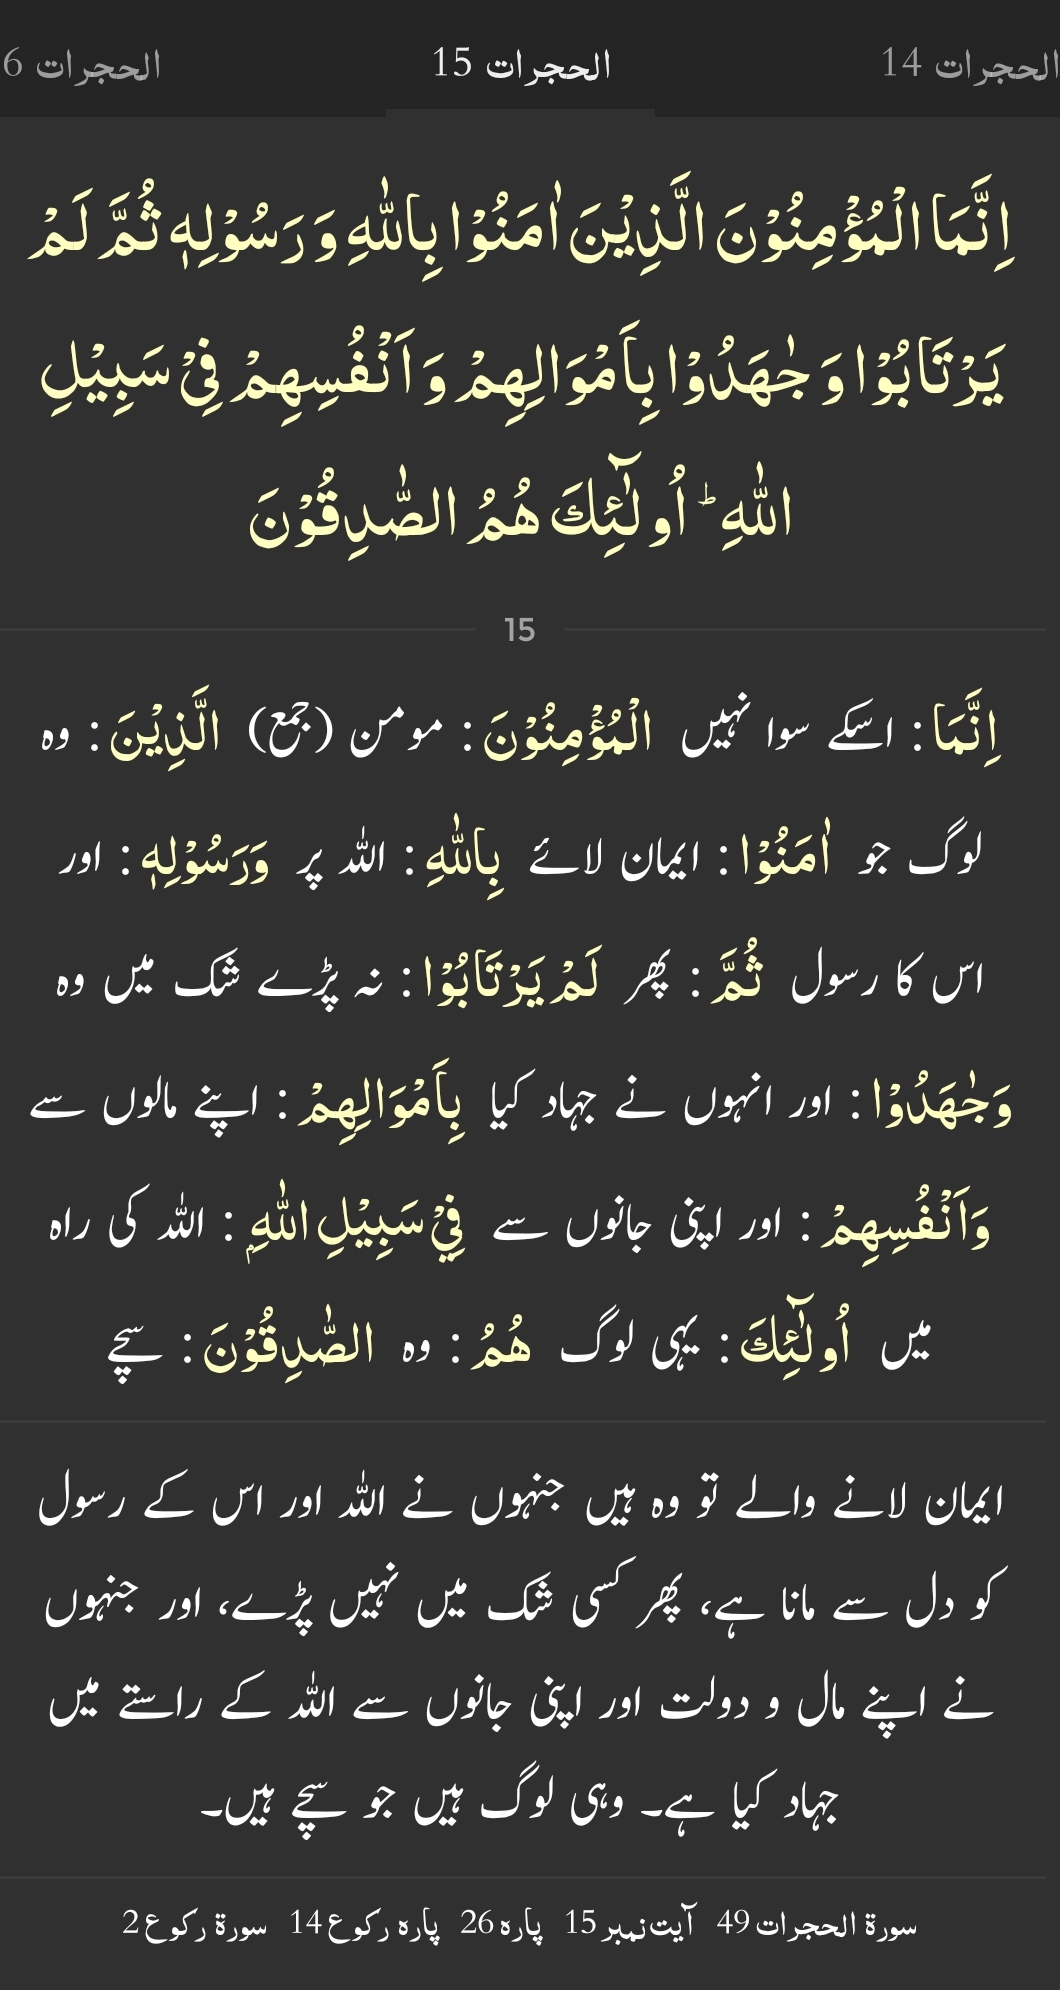 الحجرات 14 الحجرات 15 الحجرات 6
اِنَّمَا الْمُؤْمِنُوْنَ الَّذِيْنَ اٰمَنُوْا بِاللّٰهِ وَ رَسُوْلِهٖ ثُمَّ لَمْ
يَرْتَابُوْا وَ جٰهَدُوْا بِاَمْوَالِهِمْ وَ اَنْفُسِهِمْ فِيْ سَبِيْلِ
اللّٰهِ ؕ اُولٰٓئِكَ هُمُ الصّٰدِقُوْنَ
15
اِنَّمَا : اسکے سوا نہیں الْمُؤْمِنُوْنَ : مومن (جمع) الَّذِيْنَ : وہ
لوگ جو اٰمَنُوْا : ایمان لائے بِاللّٰهِ : اللہ پر وَرَسُوْلِهٖ : اور
اس کا رسول ثُمَّ : پھر لَمْ يَرْتَابُوْا : نہ پڑے شک میں وہ
وَجٰهَدُوْا : اور انہوں نے جہاد کیا بِاَمْوَالِهِمْ : اپنے مالوں سے
وَاَنْفُسِهِمْ : اور اپنی جانوں سے فِيْ سَبِيْلِ اللّٰهِۭ : اللہ کی راہ
میں اُولٰٓئِكَ : یہی لوگ هُمُ : وہ الصّٰدِقُوْنَ : سچے
ایمان لانے والے تو وہ ہیں جنہوں نے اللہ اور اس کے رسول
کو دل سے مانا ہے، پھر کسی شک میں نہیں پڑے، اور جنہوں
نے اپنے مال و دولت اور اپنی جانوں سے اللہ کے راستے میں
جہاد کیا ہے۔ وہی لوگ ہیں جو سچے ہیں۔
سورۃ الحجرات 49 آیت نمبر 15 پارہ 26 پارہ رکوع 14 سورۃ رکوع 2